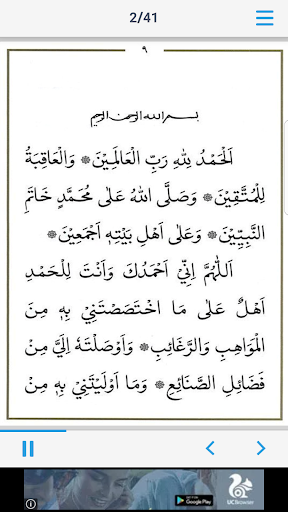 2/41
٩
بسم الله الرحمن الرحيم
اَلْحَمْدُ لِلّٰهِ رَبِّ الْعَالَمِيْنَ ۞ وَالْعَاقِبَةُ
لِلْمُتَّقِيْنَ ۞ وَصَلَّى اللهُ عَلٰى مُحَمَّدٍ خَاتَمِ
النَّبِيِّيْنَ ۞ وَعَلٰى اَهْلِ بَيْتِهٖ اَجْمَعِيْنَ ۞
اَللّٰهُمَّ اِنِّيْ اَحْمَدُكَ وَاَنْتَ لِلْحَمْدِ
اَهْلٌ عَلٰى مَا اخْتَصَصْتَنِيْ بِهٖ مِنَ
الْمَوَاهِبِ وَالرَّغَائِبِ ۞ وَاَوْصَلْتَهٗ اِلَيَّ مِنْ
فَضَائِلِ الصَّنَائِعِ ۞ وَمَا اَوْلَيْتَنِيْ بِهٖ مِنْ
Google Play
UCBrowser